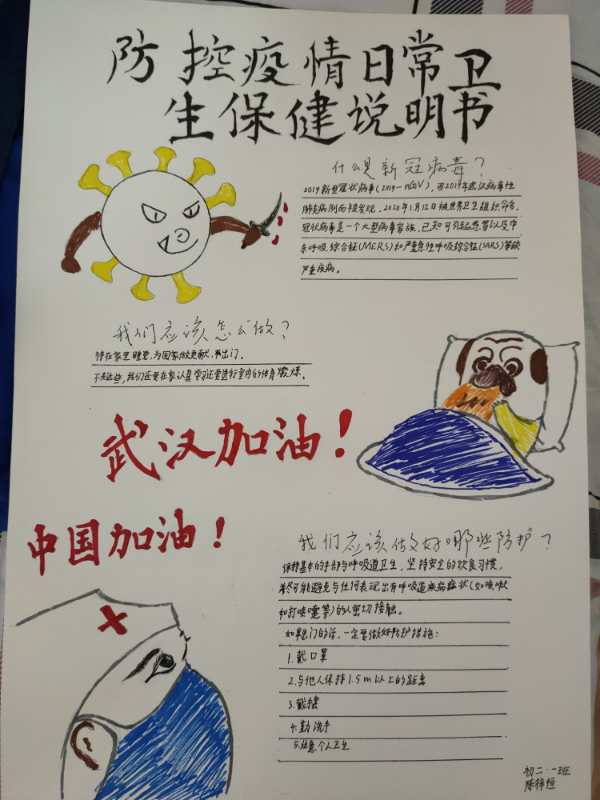 防控疫情日常卫
生保健说明书
什么是新冠病毒？
2019新型冠状病毒（2019-nCoV），因2019年武汉病毒性
肺炎病例而被发现，2020年1月12日被世界卫生组织命名。
冠状病毒是一个大型病毒家族，已知可引起感冒以及中
东呼吸综合征（MERS）和严重急性呼吸综合征（SARS）等较
严重疾病。
我们应该怎么做？
待在家里睡觉，为国家做贡献，不出门。
不光这些，我们还要在家认真学习还要进行室内的体育锻炼。
武汉加油！
中国加油！
我们应该做好哪些防护？
保持基本的手部与呼吸道卫生，坚持安全的饮食习惯，
并尽可能避免与任何表现出有呼吸道疾病症状（如咳嗽
和打喷嚏等）的人密切接触。
如果出门的话，一定要做好防护措施：
1.戴口罩
2.与他人保持1.5m以上的距离
3.戴手套
4.勤洗手
5.注意个人卫生
初二·一班